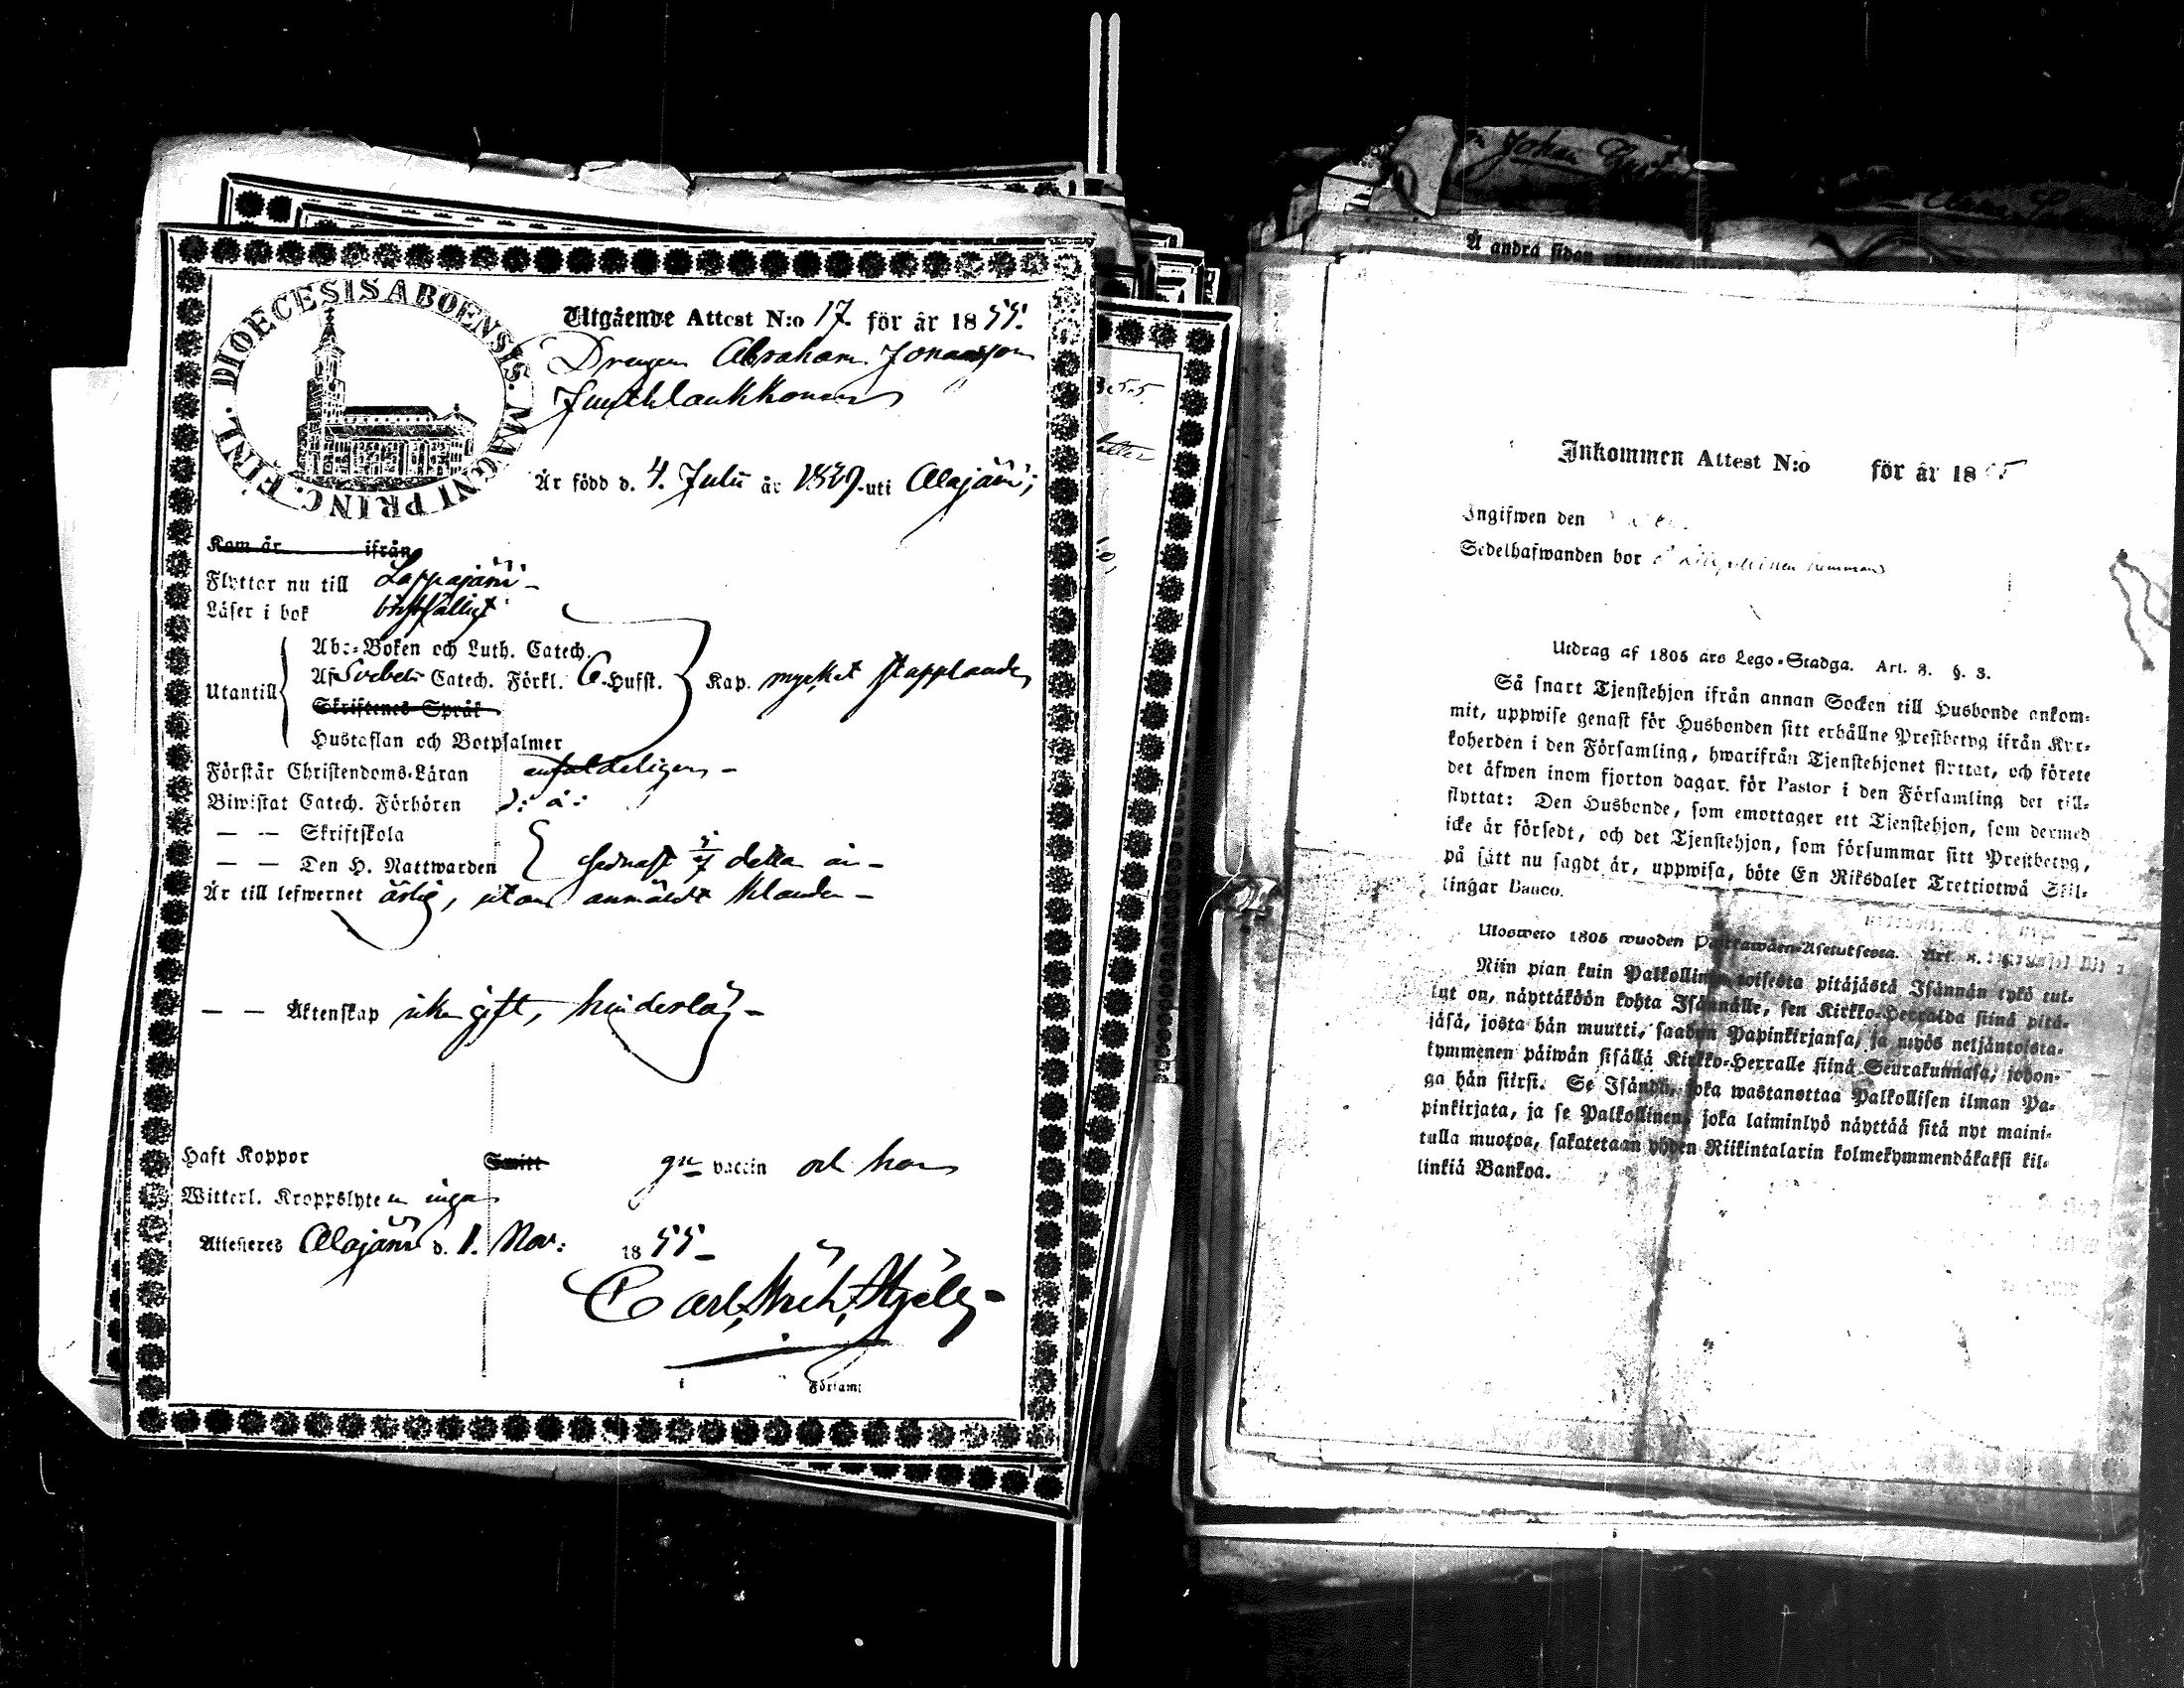 DIOECESIS ABOENSIS. MAGNI PRINC. FINL.
Utgående Attest N:o 17. för år 1855.
Drengen Abraham Jonasson
Är född d. 4. Julii år uti Alajärvi;
Kom år ifrån
Flyttar nu till Lappajärvi -
Läser i bok
Utantill
Abc-Boken och Luth. Catech.
Af Svebeli Catech. Förkl. 6. Hufst. Kap. mycket stapplande
Skriftenes Språk
Hustaflan och Botpsalmer
Förstår Christendoms-Läran enfaldeligen -
Biwistat Catech. Förhören
— — Skriftskola
— — Den H. Nattwarden sednast detta år -
Är till lefwernet ärlig, utan anmäldt klander -
— — Äktenskap icke gift, hinderlös -
Haft Koppor Smitt gn vaccin och har
Witterl. Kroppslyten inga
Attesteres Alajärvi d. 1. Nov: 1855 -
Carl
i Församl
Johan
Å andra sidan
Inkommen Attest N:o för år 1855
Ingifwen den
Sedelhafwanden bor hemman
Utdrag af 1805 års Lego-Stadga. Art. 8. §. 3.
Så snart Tjenstehjon ifrån annan Socken till Husbonde ankom-
mit, uppwise genast för Husbonden sitt erhållne Prestbetyg ifrån Kyr-
koherden i den Församling, hwarifrån Tjenstehjonet flyttat, och förete
det äfwen inom fjorton dagar för Pastor i den Församling det till-
flyttat: Den Husbonde, som emottager ett Tjenstehjon, som dermed
icke är försedt, och det Tjenstehjon, som försummar sitt Prestbetyg,
på sätt nu sagdt är, uppwisa, böte En Riksdaler Trettiotwå Skil-
lingar Banco.
Ulosweto 1805 wuoden Palkkawäen-Asetuksesta. Art. 8.
Niin pian kuin Palkollinen toisesta pitäjästä Isännän tykö tul-
lut on, näyttäköön kohta Isännälle, sen Kirkko-Herralda siinä pitä-
jäsä, josta hän muutti, saadun Papinkirjansa, ja myös neljäntoista-
kymmenen päiwän sisällä Kirkko-Herralle siinä Seurakunnasa, johon-
ga hän siirsi. Se Isändä, joka wastanottaa Palkollisen ilman Pa-
pinkirjata, ja se Palkollinen, joka laiminlyö näyttää sitä nyt maini-
tulla muotoa, sakotetaan yhden Riikintalarin kolmekymmendäkaksi kil-
linkiä Bankoa.